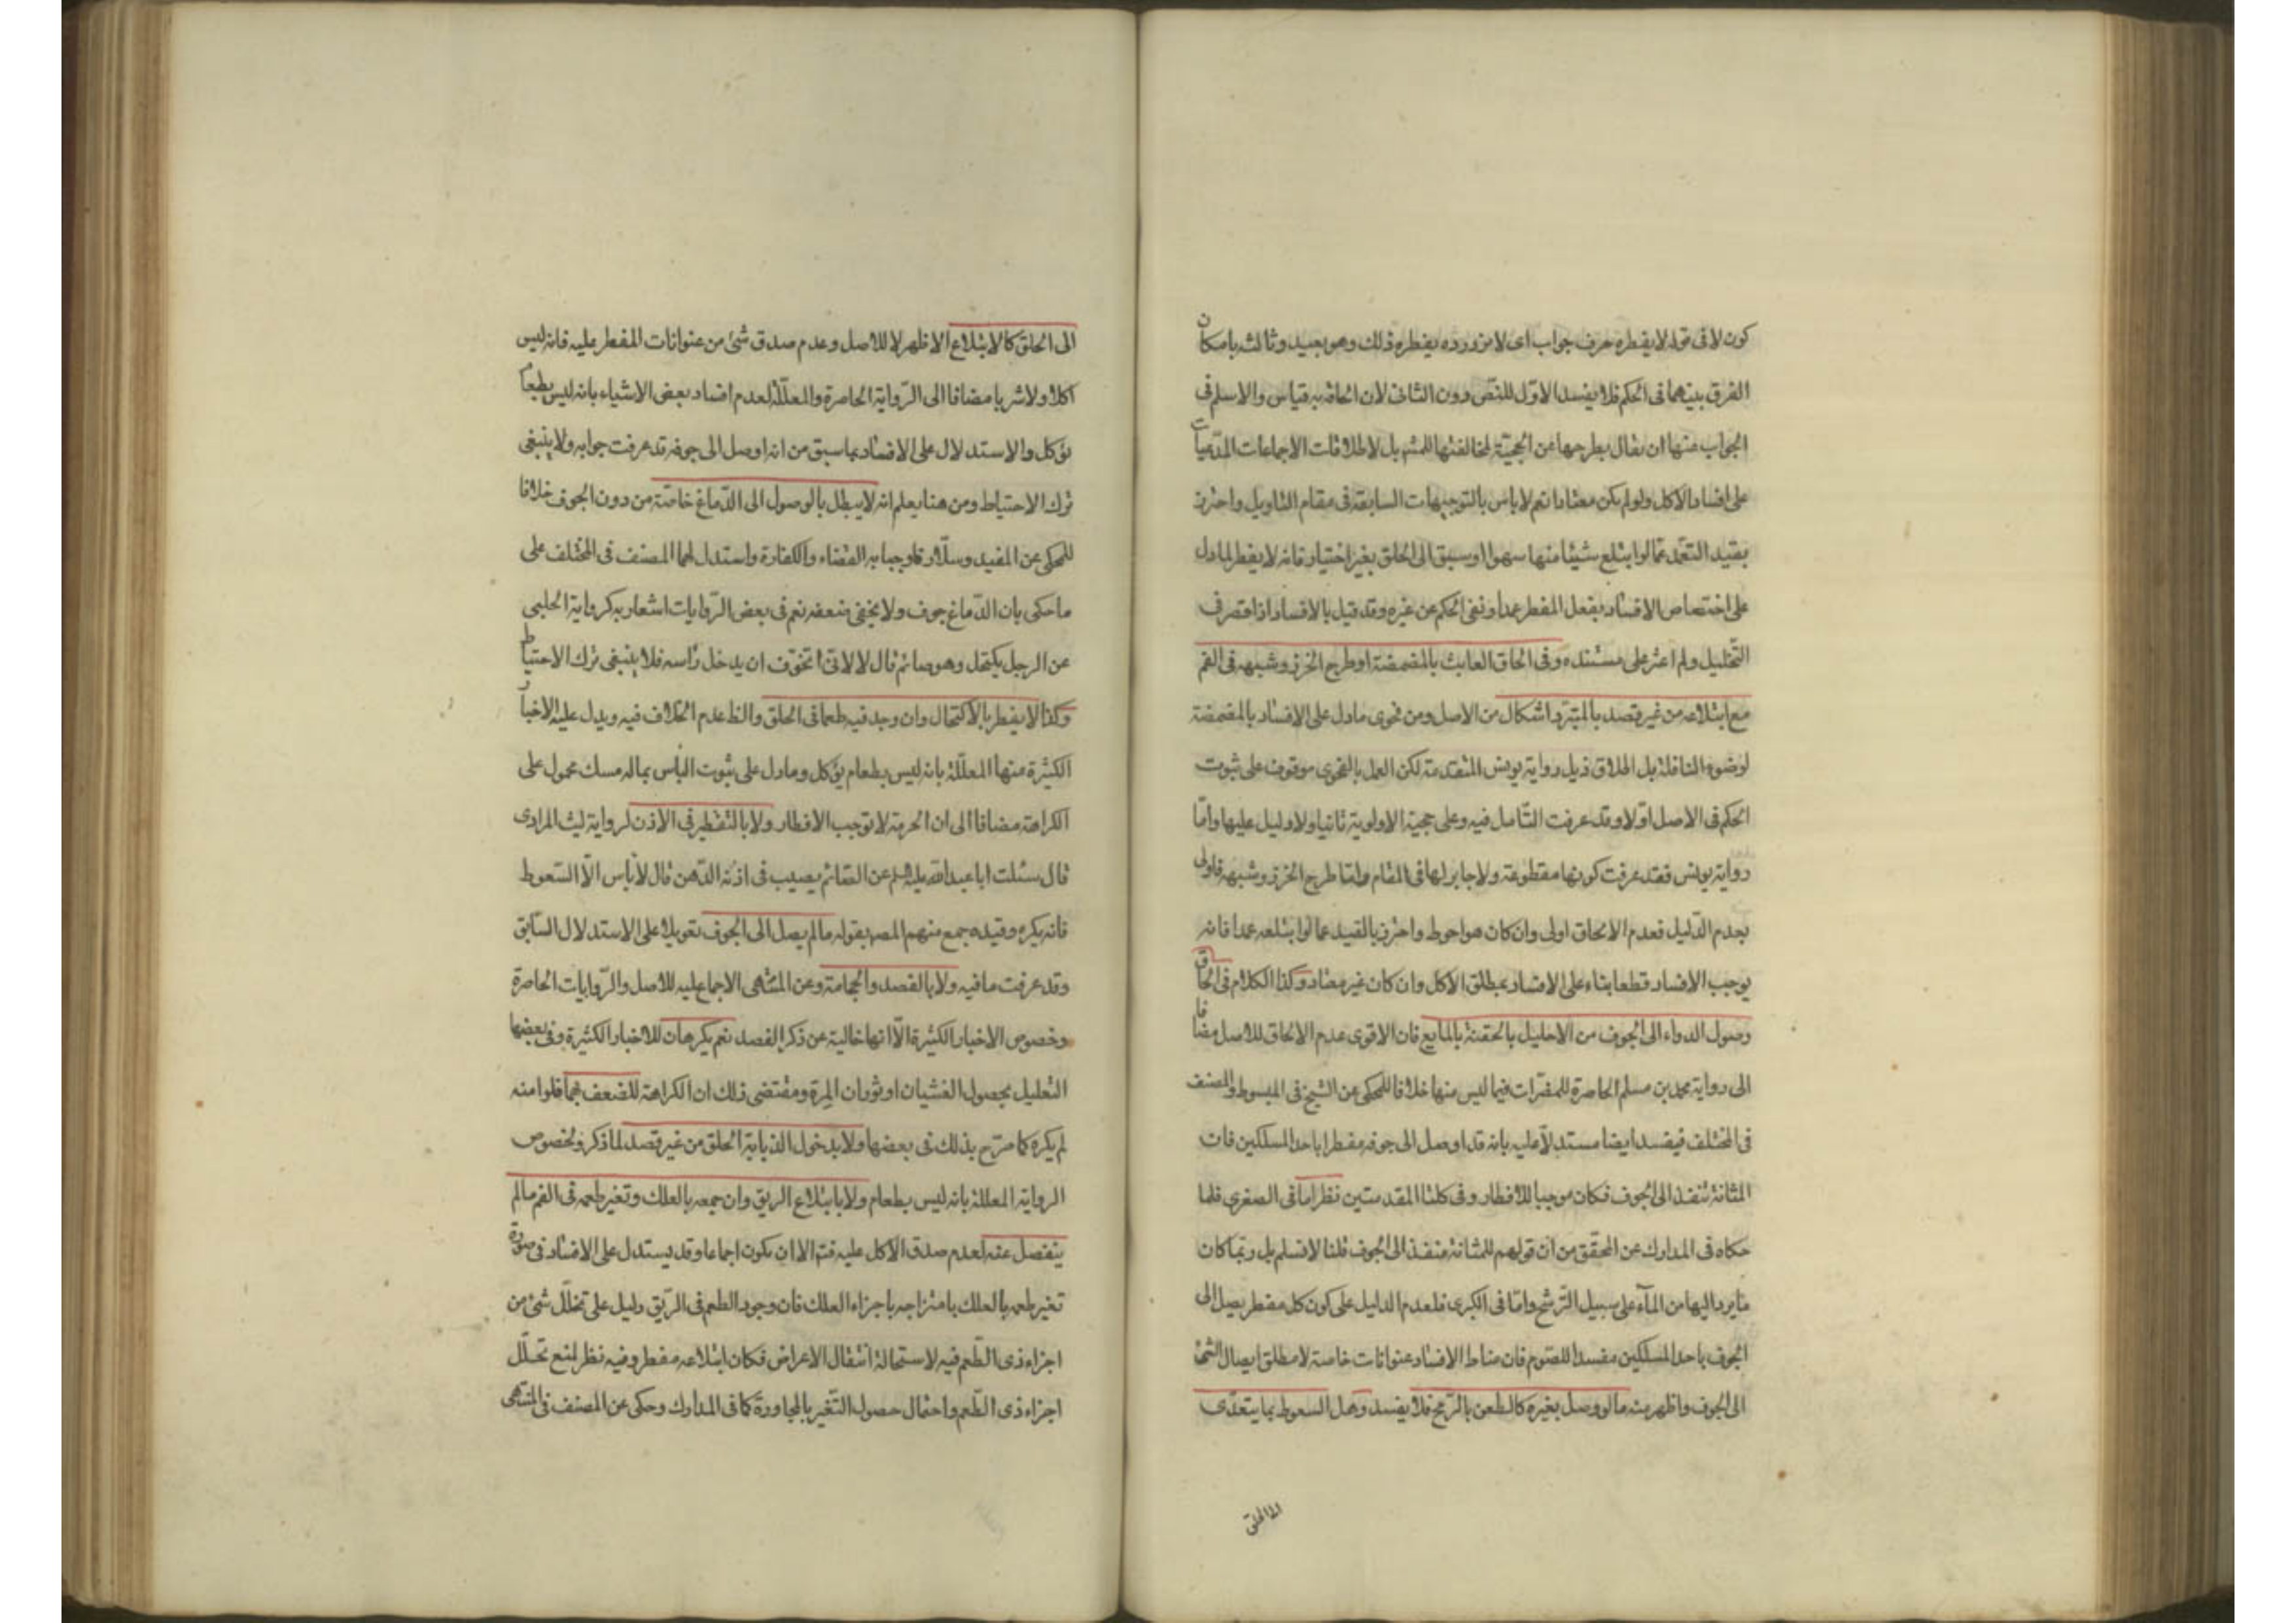 كون لا فى قوله لا يفطره حرف جواب اى لا من دروه يفطره ذلك وهو بعيد وثالثه بامكان
الفرق بينهما فى الحكم فلا يفسد الاوّل للنصّ دون الثانى لان الحاقه به قياس والاسلم فى
الجواب عنها ان يقال بطرحها عن الحجيّة لمخالفتها للشهر بل لاطلاقات الاجماعات المدّعيات
على افساد الاكل ولو لم يكن معتادا نعم لا باس بالتوجيهات السابقة فى مقام التاويل واحترز
بقيد التعمّد عمّا لو ابتلع شيئا منها سهوا او سبق الى الحلق بغير اختيار فانه لا يفطر لما دل
على اختصاص الافساد بفعل المفطر عمدا ونفى الحكم عن غيره وقد قيل بالافساد اذا قصر فى
التخليل ولم اعثر على مستنده وفى الحاق العابث بالمضمضة او طرح الخرز وشبهه فى الفم
مع ابتلاعه من غير قصد بالمتبرّد اشكال من الاصل ومن فحوى ما دل على الافساد بالمضمضة
لوضوء النافلة بل اطلاق ذيل رواية يونس المتقدمة لكن العمل بالفحوى موقوف على ثبوت
الحكم فى الاصل اوّلا وقد عرفت التّامل فيه وعلى حجية الاولوية ثانيا ولا دليل عليها وامّا
رواية يونس فقد عرفت كونها مقطوعة ولا جابر لها فى المقام وامّا طرح الخرز وشبهه فاولى
بعدم الدّليل فعدم الالحاق اولى وان كان هو احوط واحترز بالقيد عما لو ابتلعه عمدا فانه
يوجب الافساد قطعا بناء على الافساد بمطلق الاكل وان كان غير معتاد وكذا الكلام فى الحاق
وصول الدواء الى الجوف من الاحليل بالحقنة بالمايع فان الاقوى عدم الالحاق للاصل مضافا
الى رواية محمد بن مسلم الحاصرة للمضرّات فيما ليس منها خلافا للمحكى عن الشيخ فى المبسوط والمصنف
فى المختلف فيفسد ايضا مستدلّا عليه بانه قد اوصل الى جوفه مفطرا باحد المسلكين فان
المثانة تنفذ الى الجوف فكان موجبا للافطار وفى كلتا المقدمتين نظر اما فى الصغرى فلما
حكاه فى المدارك عن المحقق من ان قولهم للمثانة منفذ الى الجوف قلنا لا نسلم بل ربّما كان
ما يرد اليها من المآء على سبيل الترشّح وامّا فى الكبرى فلعدم الدليل على كون كل مفطر يصل الى
الجوف باحد المسلكين مفسدا للصوم فان مناط الافساد عنوانات خاصة لا مطلق ايصال الشئ
الى الجوف واظهر منه ما لو وصل بغيره كالطعن بالرّمح فلا يفسد وهل السعوط بما يتعدّى
الى الحلق
الى الحلق كالابتلاع الاظهر لا للاصل وعدم صدق شئ من عنوانات المفطر عليه فانه ليس
اكلا ولا شربا مضافا الى الرّواية الحاصرة والمعلّلة لعدم افساد بعض الاشياء بانه ليس بطعام
يؤكل والاستدلال على الافساد بما سبق من انه اوصل الى جوفه قد عرفت جوابه ولا ينبغى
ترك الاحتياط ومن هنا يعلم انه لا يبطل بالوصول الى الدّماغ خاصّة من دون الجوف خلافا
للمحكى عن المفيد وسلّار فاوجبا به القضاء والكفارة واستدل لهما المصنف فى المختلف على
ما حكى بان الدّماغ جوف ولا يخفى ضعفه نعم فى بعض الرّوايات اشعار به كرواية الحلبى
عن الرجل يكتحل وهو صائم قال لا لانّى اتخوّف ان يدخل راسه فلا ينبغى ترك الاحتياط
وكذا لا يفطر بالاكتحال وان وجد فيه طعما فى الحلق والظ عدم الخلاف فيه ويدل عليه الاخبار
الكثيرة منها المعلّلة بانه ليس بطعام يؤكل وما دل على ثبوت البأس بما له مسك محمول على
الكراهة مضافا الى ان الحرمة لا توجب الافطار ولا بالتقطير فى الاذن لرواية ليث المرادى
قال سئلت ابا عبد الله عليه السلم عن الصّائم يصيب فى اذنه الدّهن قال لا باس الّا السّعوط
فانه يكره وقيده جمع منهم المصه بقوله ما لم يصل الى الجوف تعويلا على الاستدلال السّابق
وقد عرفت ما فيه ولا بالفصد والحجامة وعن المنتهى الاجماع عليه للاصل والرّوايات الحاصرة
وخصوص الاخبار الكثيرة الّا انها خالية عن ذكر الفصد نعم يكرهان للاخبار الكثيرة وفى بعضها
التعليل بحصول الغشيان او ثوران المرة ومقتضى ذلك ان الكراهة للضعف بهما فلو امنه
لم يكره كما صرّح بذلك فى بعضها ولا بدخول الذبابة الحلق من غير قصد لما ذكر ولخصوص
الرواية المعللة بانه ليس بطعام ولا بابتلاع الريق وان جمعه بالعلك وتغير طعمه فى الفم ما لم
ينفصل عنه لعدم صدق الاكل عليه فتم الا ان يكون اجماعا وقد يستدل على الافساد فى صورة
تغير طعمه بالعلك بامتزاجه باجزاء العلك فان وجود الطعم فى الرّيق دليل على تخلّل شئ من
اجزاء ذى الطّعم فيه لاستحالة انتقال الاعراض فكان ابتلاعه مفطر وفيه نظر لمنع تحلّل
اجزاء ذى الطّعم واحتمال حصول التّغير بالمجاورة كما فى المدارك وحكى عن المصنف فى المنتهى